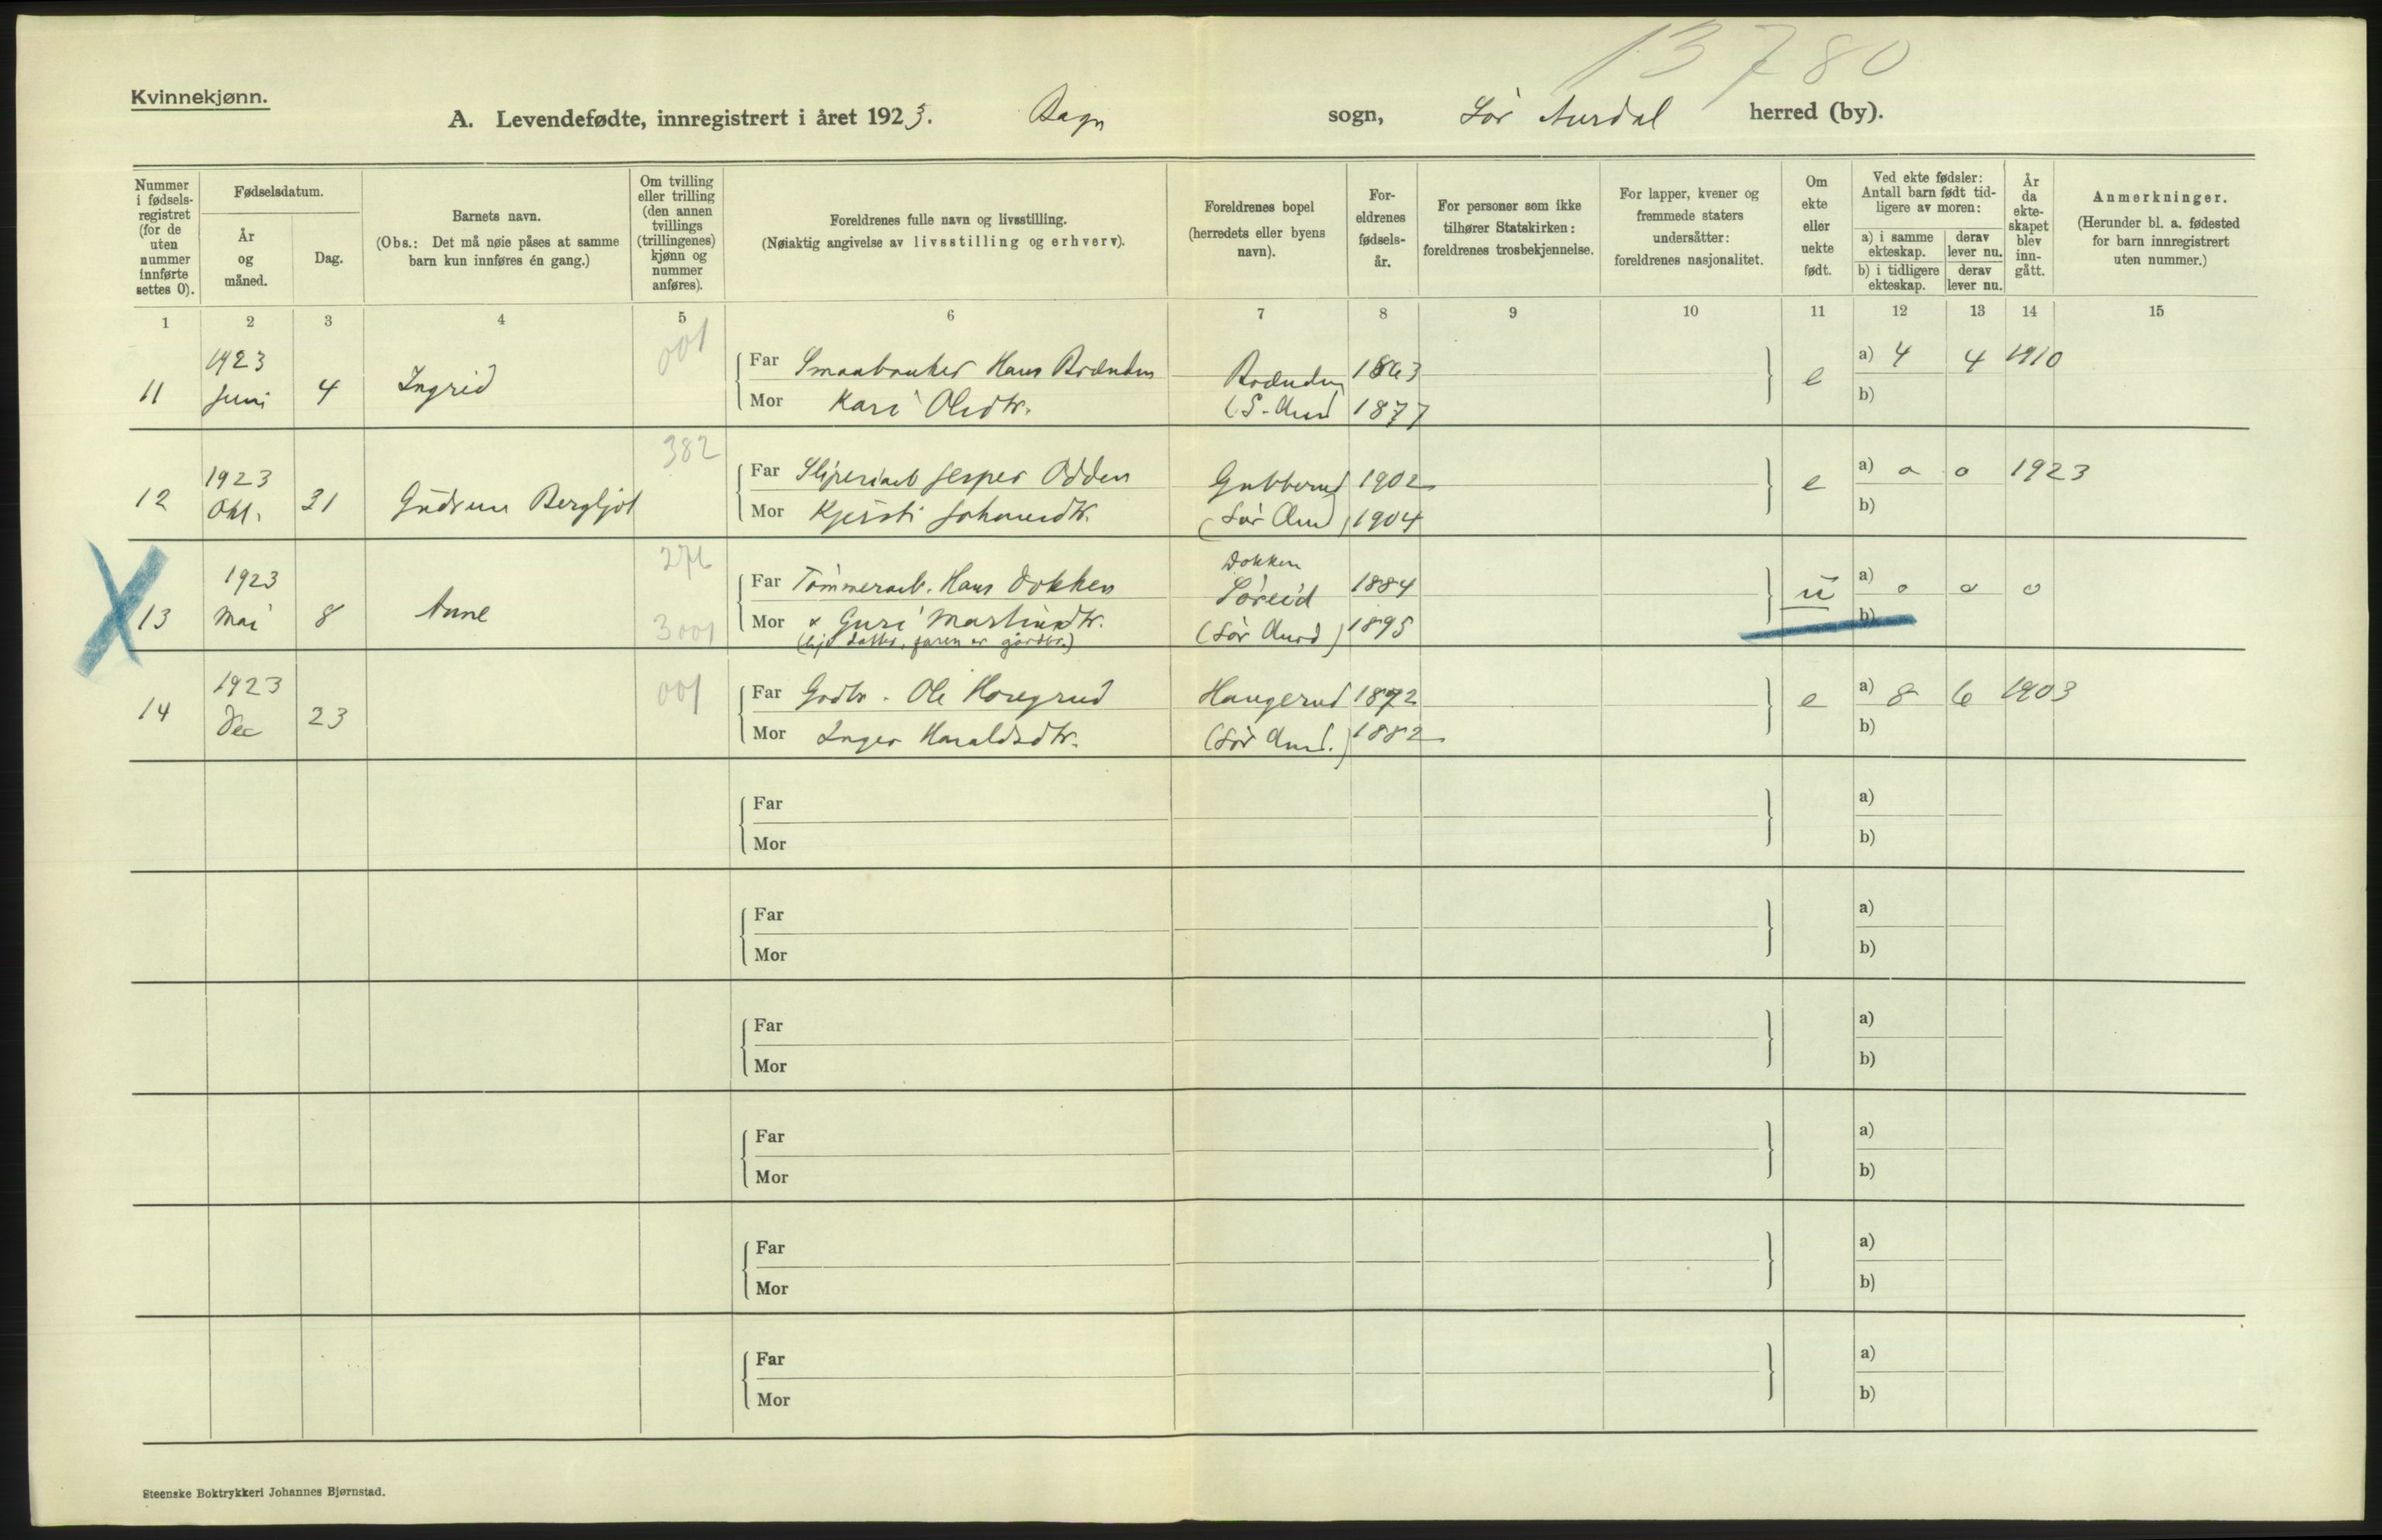 13780
Kvinnekjønn.
A. Levendefødte, innregistrert i året 1923. Bagn sogn, Sør Aurdal herred (by).
Nummer i fødsels-registret (for de uten nummer innførte settes 0).
Fødselsdatum.
År og måned.
Dag.
Barnets navn.
(Obs.: Det må nøie påses at samme barn kun innføres én gang.)
Om tvilling eller trilling (den annen tvillings (trillingenes) kjønn og nummer anføres).
Foreldrenes fulle navn og livsstilling.
(Nøiaktig angivelse av livsstilling og erhverv).
Foreldrenes bopel (herredets eller byens navn).
For-eldrenes fødsels-år.
For personer som ikke tilhører Statskirken: foreldrenes trosbekjennelse.
For lapper, kvener og fremmede staters undersåtter: foreldrenes nasjonalitet.
Om ekte eller uekte født.
Ved ekte fødsler: Antall barn født tid-ligere av moren:
a) i samme ekteskap.
derav lever nu.
b) i tidligere ekteskap.
derav lever nu.
År da ekte-skapet blev inn-gått.
Anmerkninger.
(Herunder bl. a. fødested for barn innregistrert uten nummer.)
1 2 3 4 5 6 7 8 9 10 11 12 13 14 15
001
1923 Far Smaabruker Hans Brænden Brænden 1863 a) 4 4 1910
11 Juni 4 Ingrid Mor Kari Olsdtr. (S. Aurd 1877 e b)
382
1923 Far Sliperiarb Jesper Odden Gubberud 1902 a) o o 1923
12 Okt. 31 Gudrun Bergljot Mor Kjersti Johannesdtr. (Sør Aurd) 1904 e b)
276 Dokken
1923 Far Tømmerarb. Hans Dokken Søreid 1884 a) o o o
13 Mai 8 Anne 3001 Mor x Guri Martinsdtr. (Sør Aurd) 1895 u b)
(hj. datter, faren er gårdbr.)
1923 001 Far Grdbr. Ole Haugerud Haugerud 1872 a) 8 6 1903
14 Dec 23 Mor Inger Haraldsdtr. (Sør Aurd.) 1882 e b)
Far a)
Mor b)
Far a)
Mor b)
Far a)
Mor b)
Far a)
Mor b)
Far a)
Mor b)
Far a)
Mor b)
Steenske Boktrykkeri Johannes Bjørnstad.